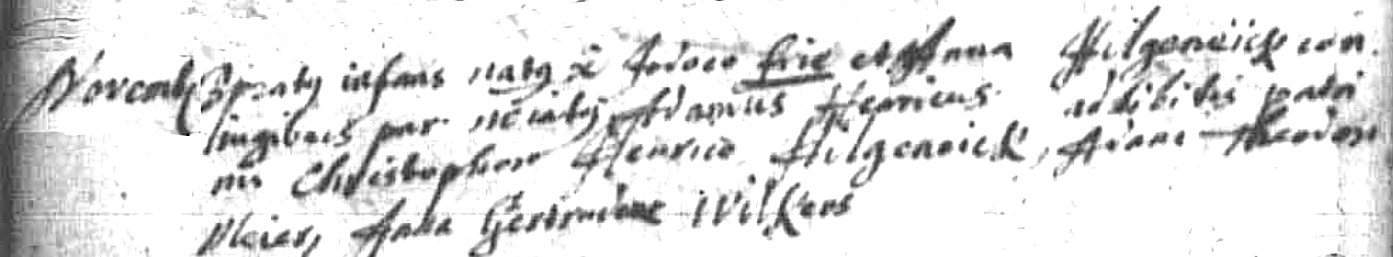 Novemb 3 p̃zatg infans natg ẽ Jodoco frie et Anna Hilgeneick con
iugibus par nõiatg Adamus Henricus adhibitis patri
nis Christophoro Henrico Hilgeneick, Adam Theodor
Meier, Anna Gertrudone Wilkens